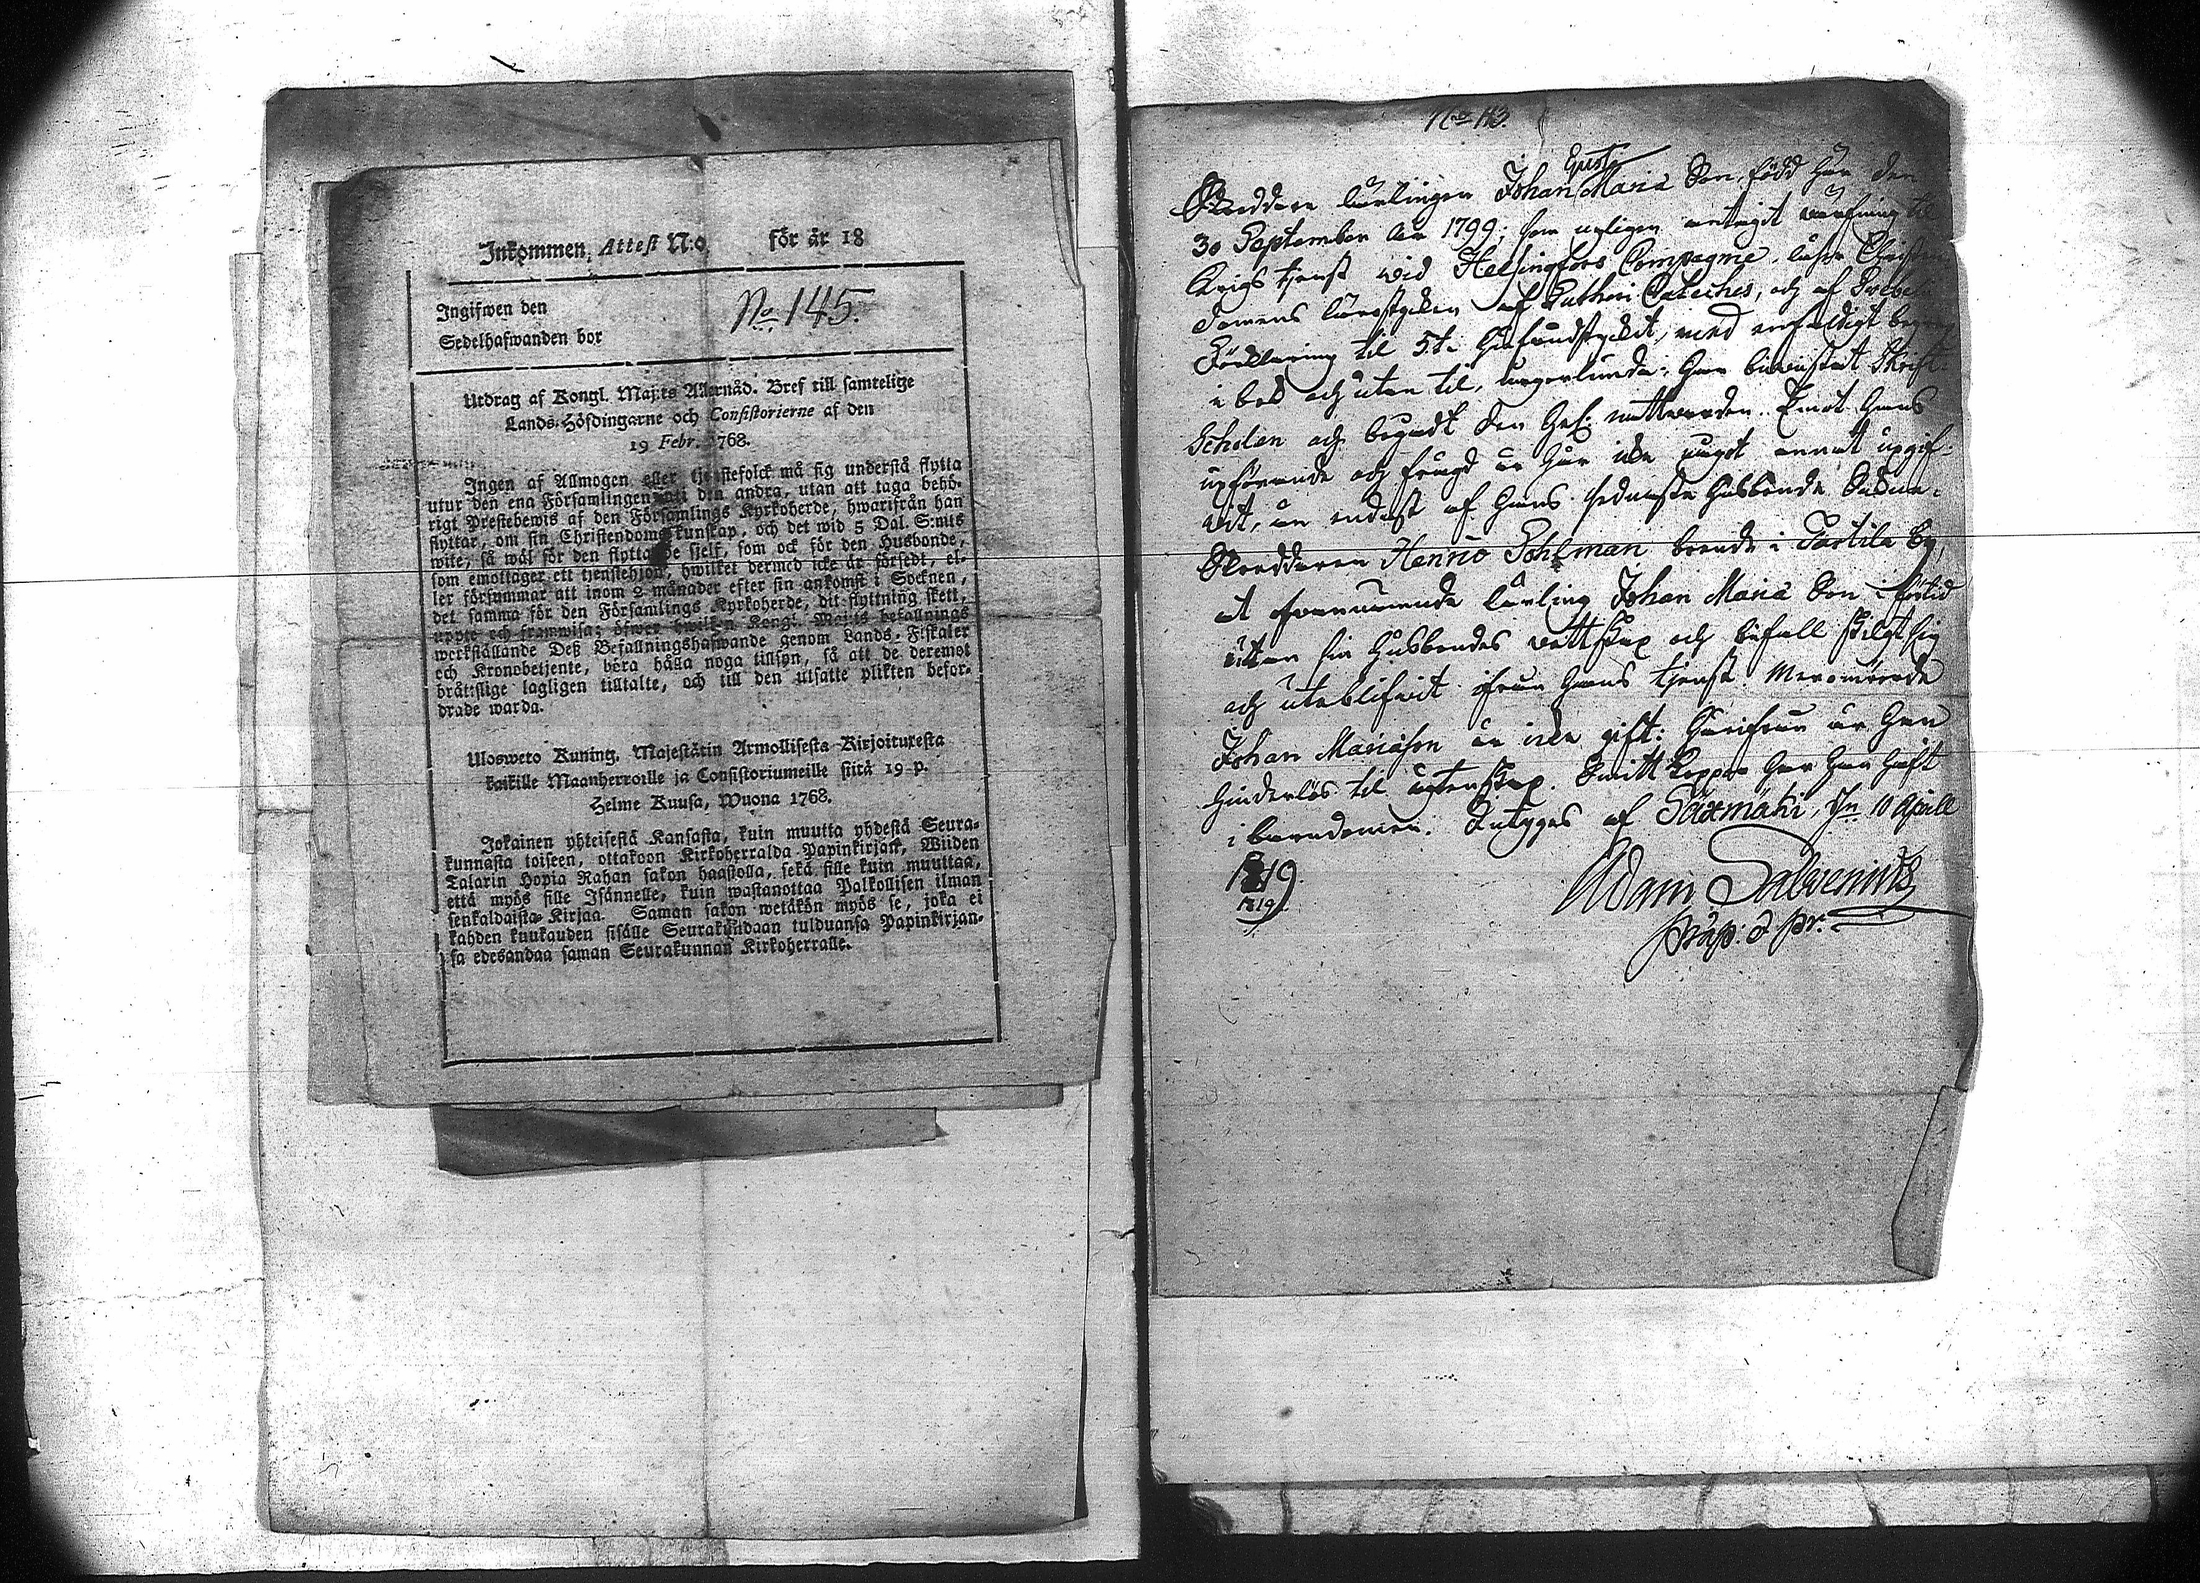 Inkommen, Attest N:o för år 18
Ingifwen den
No 145.
Sedelhafwanden bor
Utdrag af Kongl. Maj:ts Allernåd. Bref till samtelige
Lands-Höfdingarne och Consistorierne af den
19 Febr. 1768.
Ingen af Allmogen eller tjenstefolck må sig understå flytta
utur den ena Församlingen uti den andra, utan att taga behö-
rigt Prestebewis af den Församlings Kyrkoherde, hwarifrån han
flyttar, om sin Christendoms kunskap, och det wid 5 Dal. S:mts
wite, så wäl för den flyttande sielf, som ock för den Husbonde,
som emottager ett tjenstehjon, hwilket dermed icke är försedt, el-
ler försummar att inom 2 månader efter sin ankomst i Socknen,
det samma för den Församlings Kyrkoherde, dit flyttning skett,
uppte och framwisa; öfwer hwilken Kongl. Maj:ts befallnings
werkställande Deß Befallningshafwande genom Lands-Fiskaler
och Kronobetjente, böra hålla noga tillsyn, så att de deremot
bråttslige lagligen tilltalte, och till den utsatte plikten befor-
drade warda.
Ulosweto Kuning. Majestätin Armollisesta Kirjoituxesta
kaikille Maanherroille ja Consistoriumeille siitä 19 p.
Helme Kuusa, Wuona 1768.
Jokainen yhteisestä Kansasta, kuin muutta yhdestä Seura-
kunnasta toiseen, ottakoon Kirkoherralda Papinkirjan, Wiiden
Talarin Hopia Rahan sakon haastolla, sekä sille kuin muuttaa,
että myös sille Isännelle, kuin wastanottaa Palkollisen ilman
senkaldaista Kirjaa. Saman sakon wetäkön myös se, joka ei
kahden kuukauden sisälle Seurakundaan tulduansa Papinkirjan-
sa edesandaa saman Seurakunnan Kirkoherralle.
No 113.
Gust.
Skreddare lärlingen Johan Mariæ Son, född här den
30 September år 1799; som nyligen antagit värfning til
Krigstjenst wid Helsingfors Compagnie, läser Christen
domens lärostycken af Lutheri Cateches, och af Svebelii
Förklaring til 5te hufvudstycket, med enfaldigt begrep
i bok och utan til, begynt den H:s nattvarden. Emot hans
upförande och frägd är här icke något annat upgif-
vit, än endast af hans sednaste husbonde Sokne-
Skreddaren Henric Pohlman boende i Tarttila by,
at ofvannämnde lärling Johan Mariæ Son i förtid
utan sin husbondes vettskap och bifall skilgt sig
och uteblifvit ifrån hans tjenst. Meromörde
Johan Mariæson är icke gift: hvarifrån är han
hinderlös til ägtenskap. Smittkoppor har han haft
i barndomen. Betygas af Sääxmäki, d. 10 Aprill
1819
1819.
Adam Salvenius
Präp: & Pr.